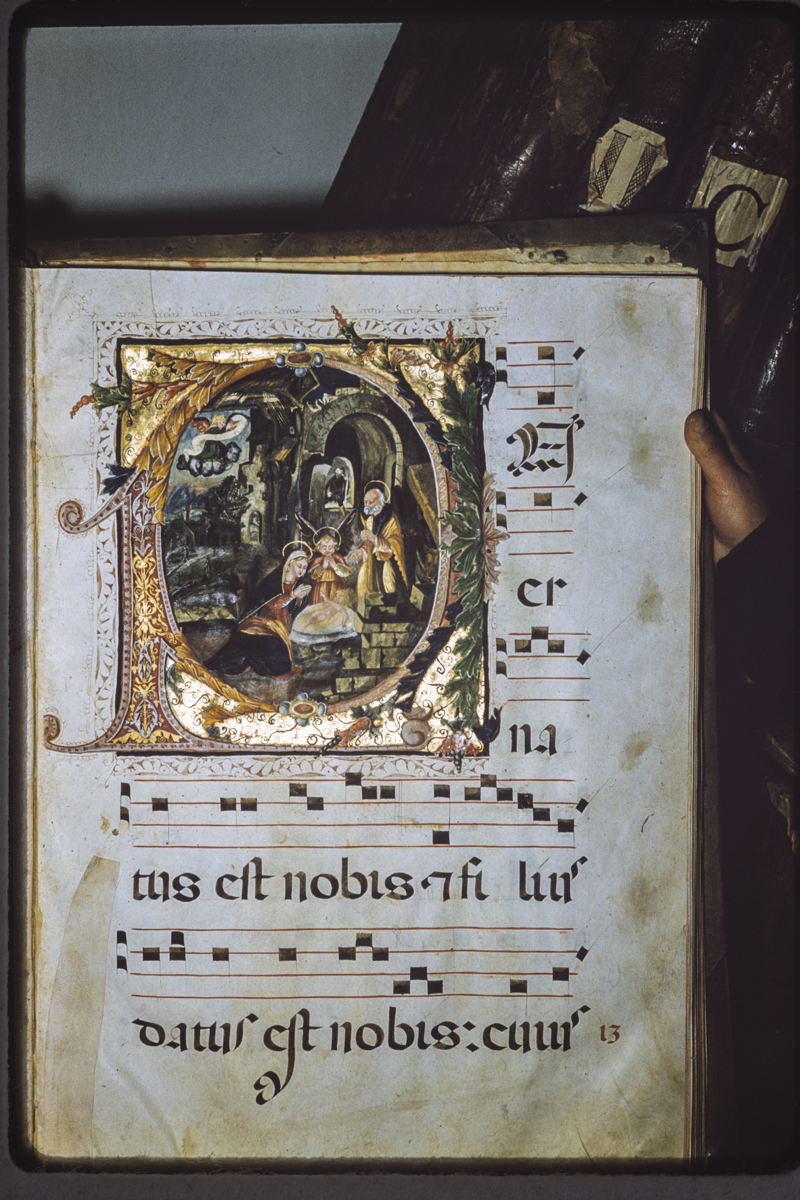 C
PU
er
na
tus est nobis ⁊ fi lius
datus est nobis: cuius 13